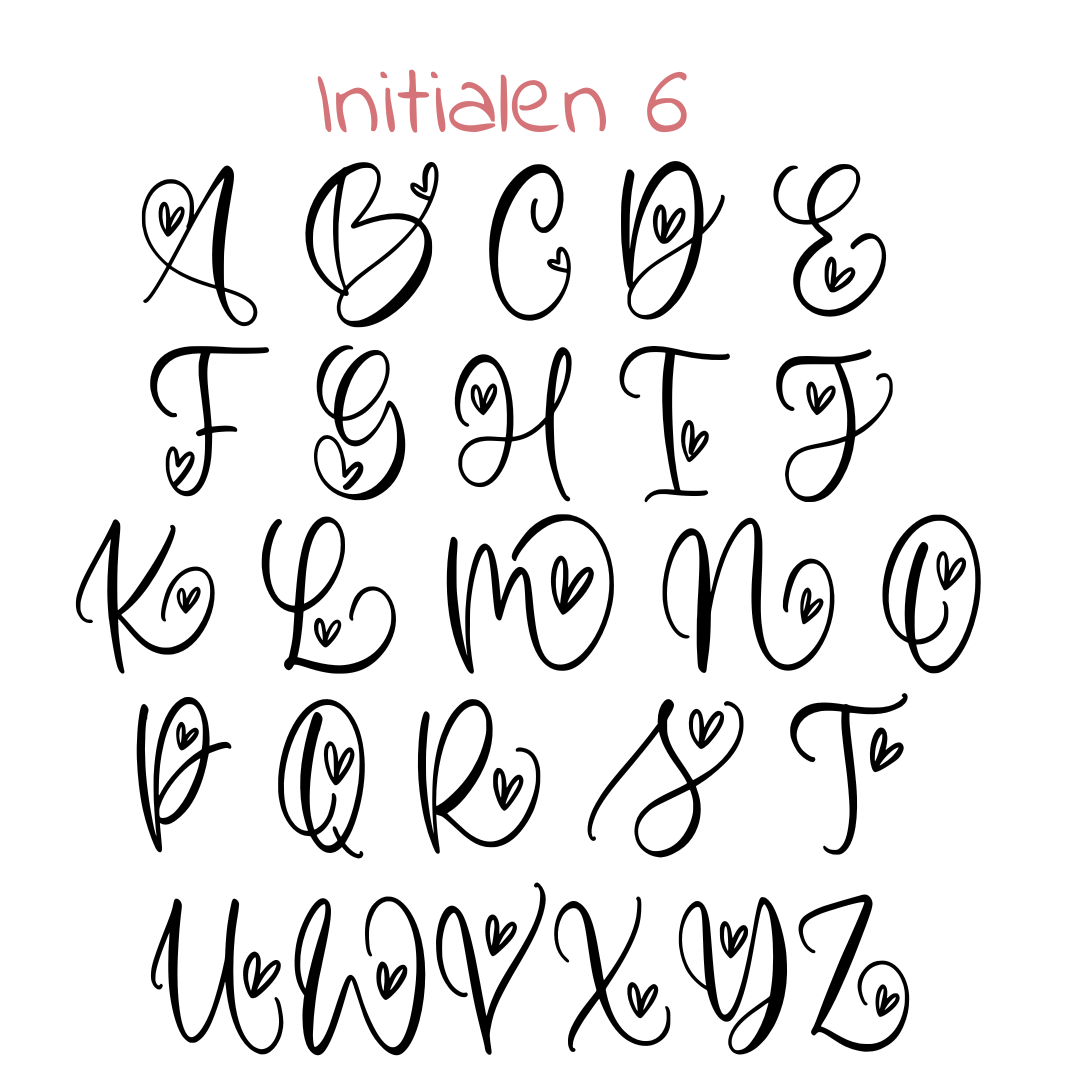 Initialen 6
A B C D E
F G H I J
K L M N O
P Q R S T
U W V X Y Z